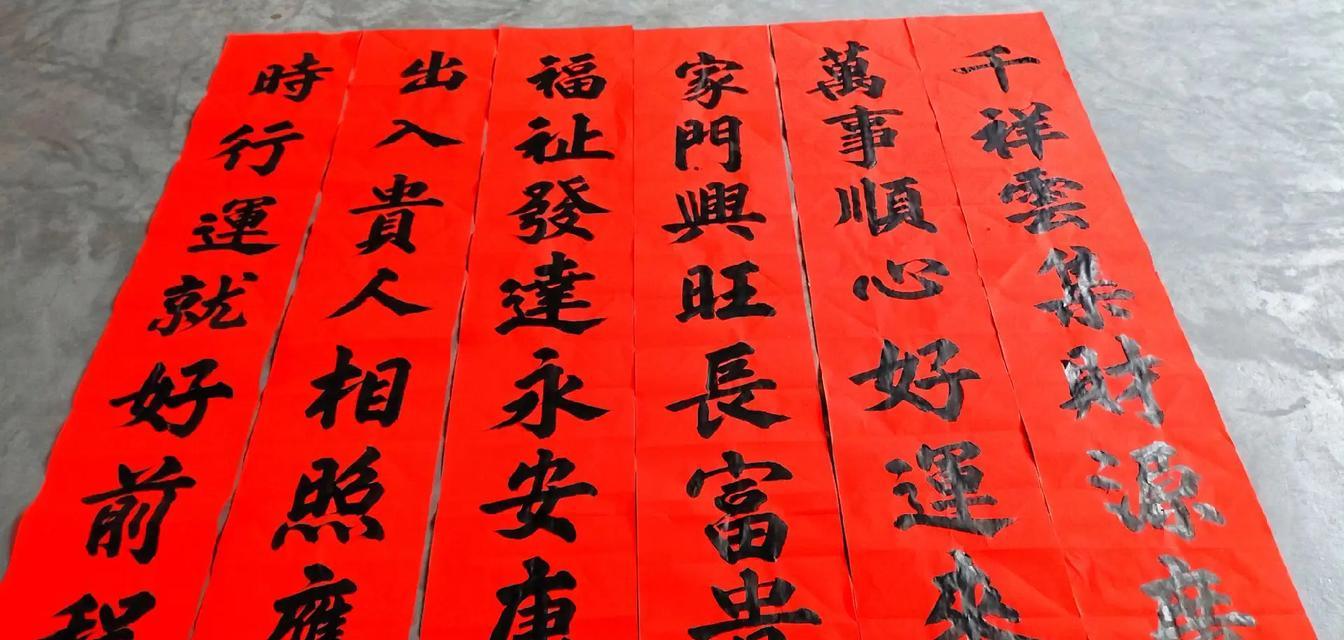 千祥雲集財源
萬事順心好運來
家門興旺長富貴
福祉發達永安康
出入貴人相照應
時行運就好前程